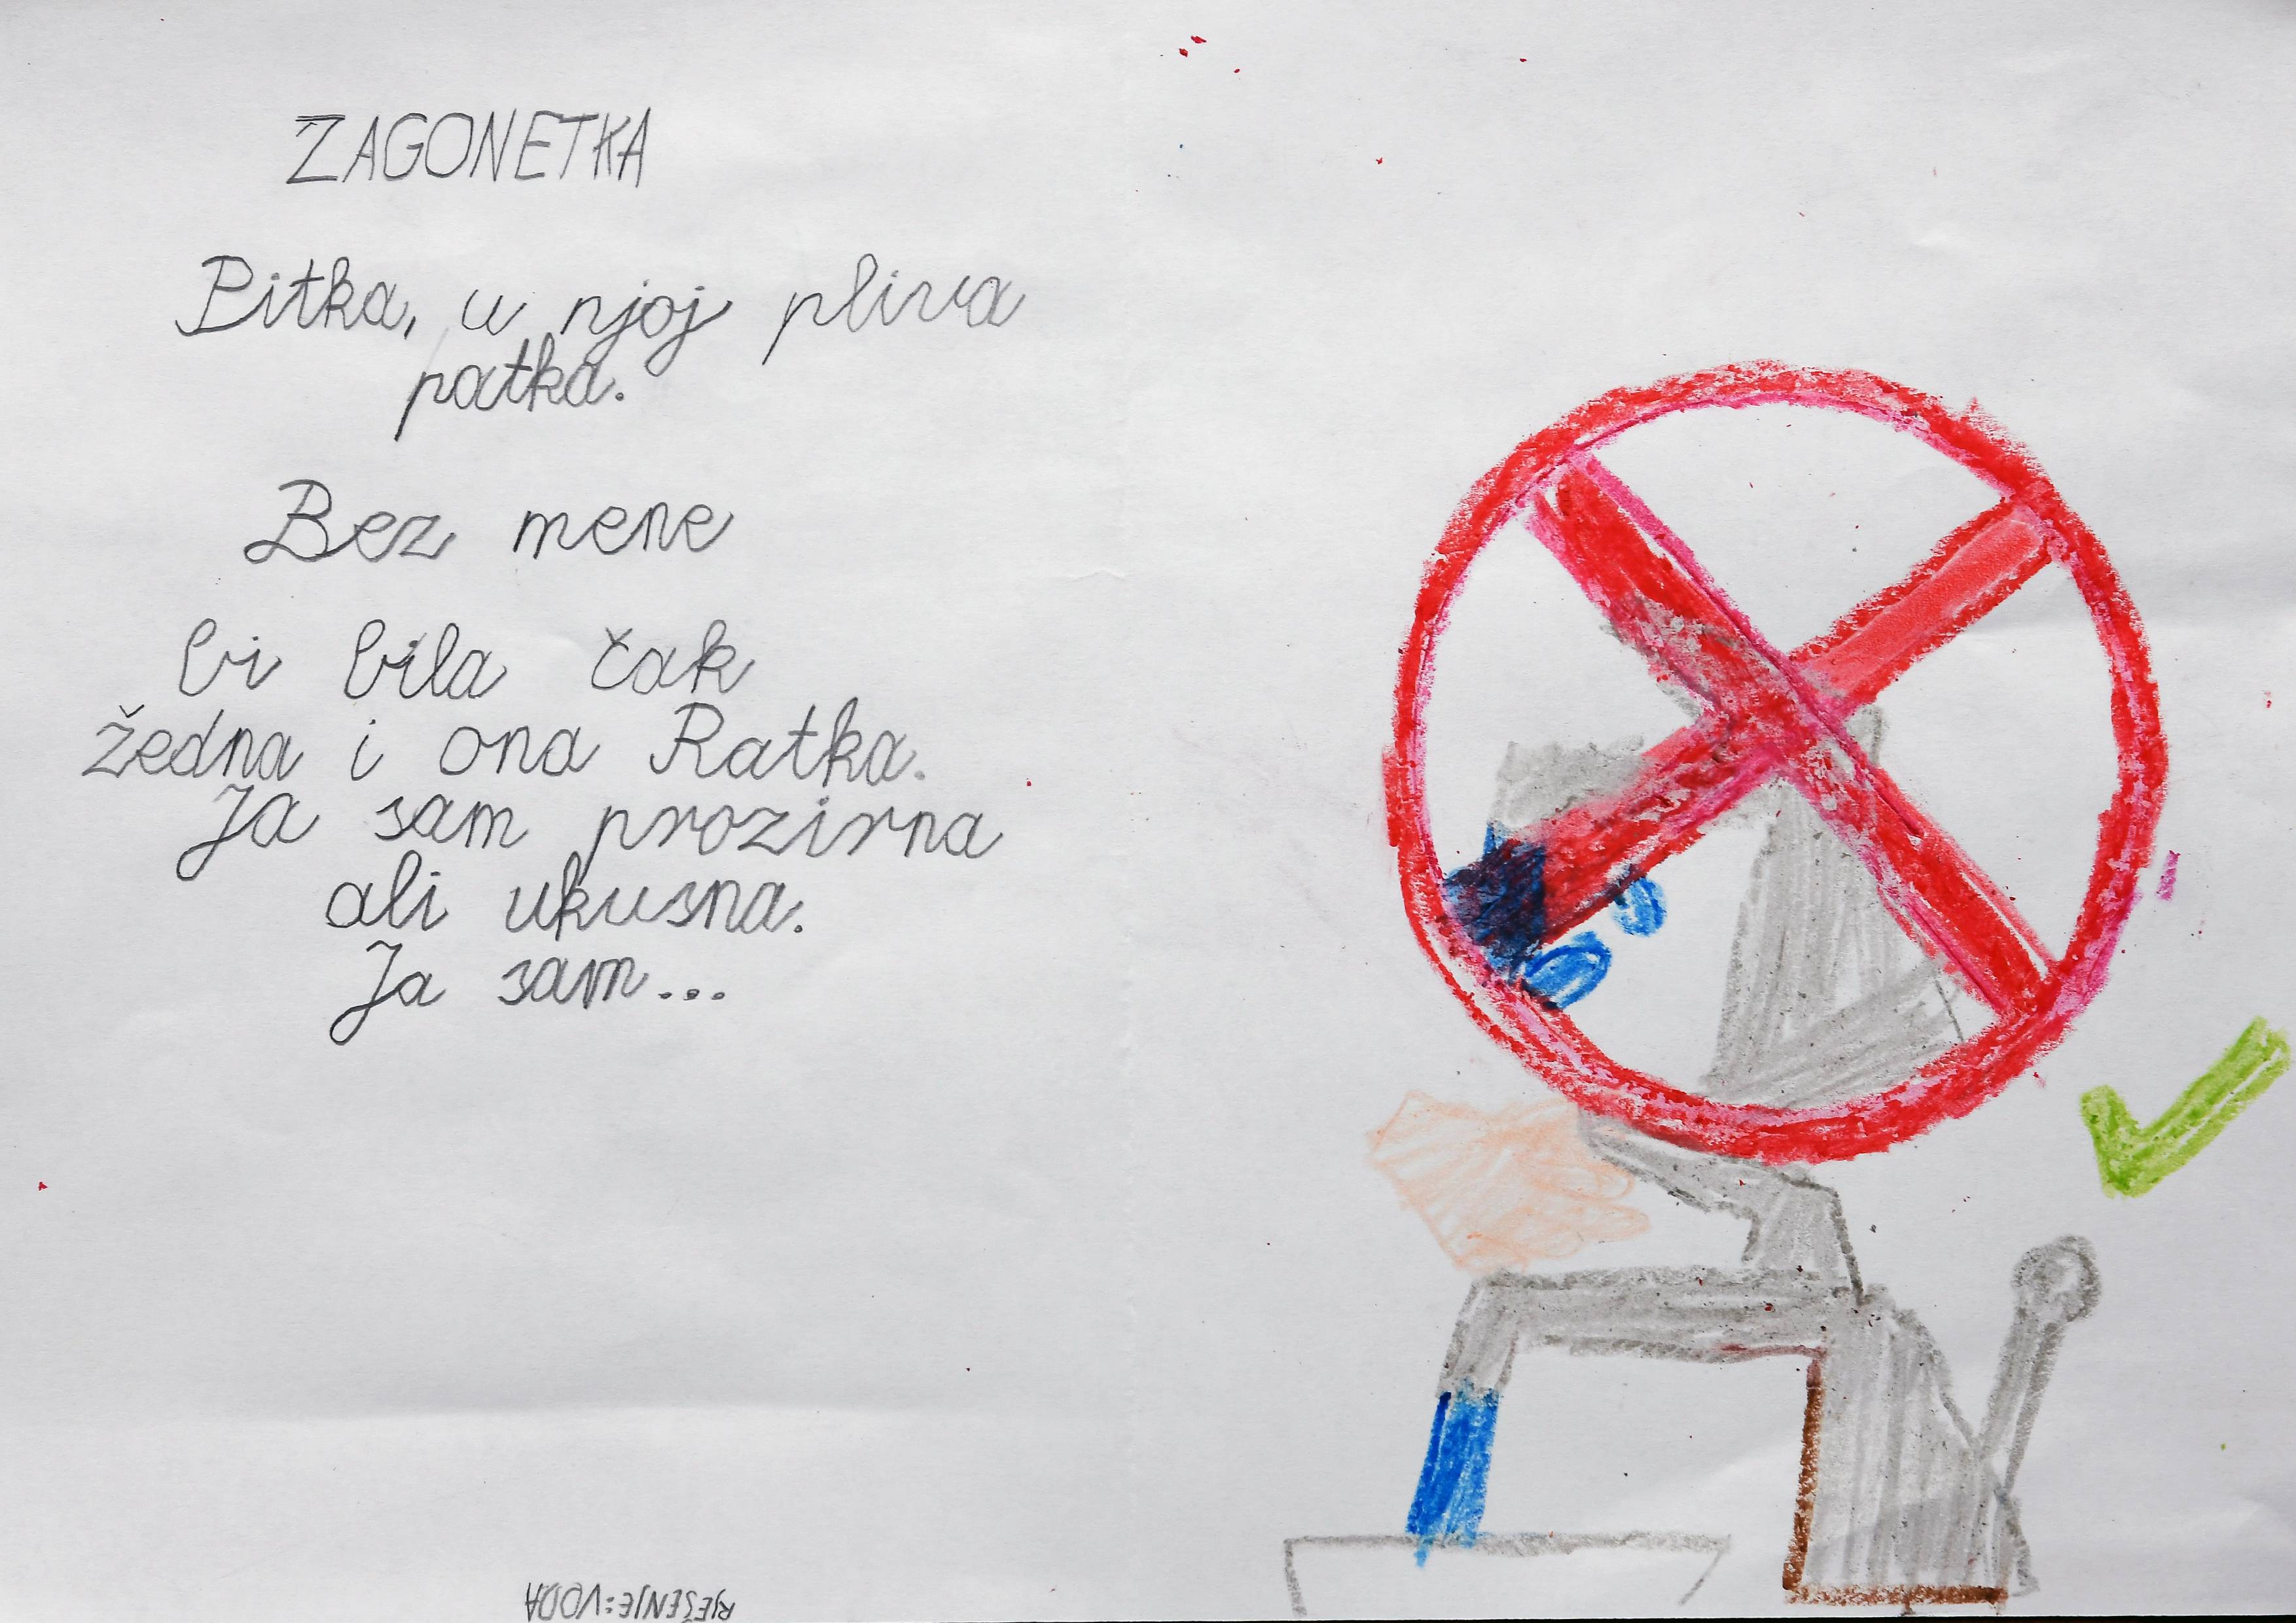 ZAGONETKA
Pitka, u njoj pliva
patka.
Bez mene
bi bila čak
žedna i ona Ratka.
Ja sam prozirna
ali ukusna.
Ja sam...
RJEŠENJE:VODA